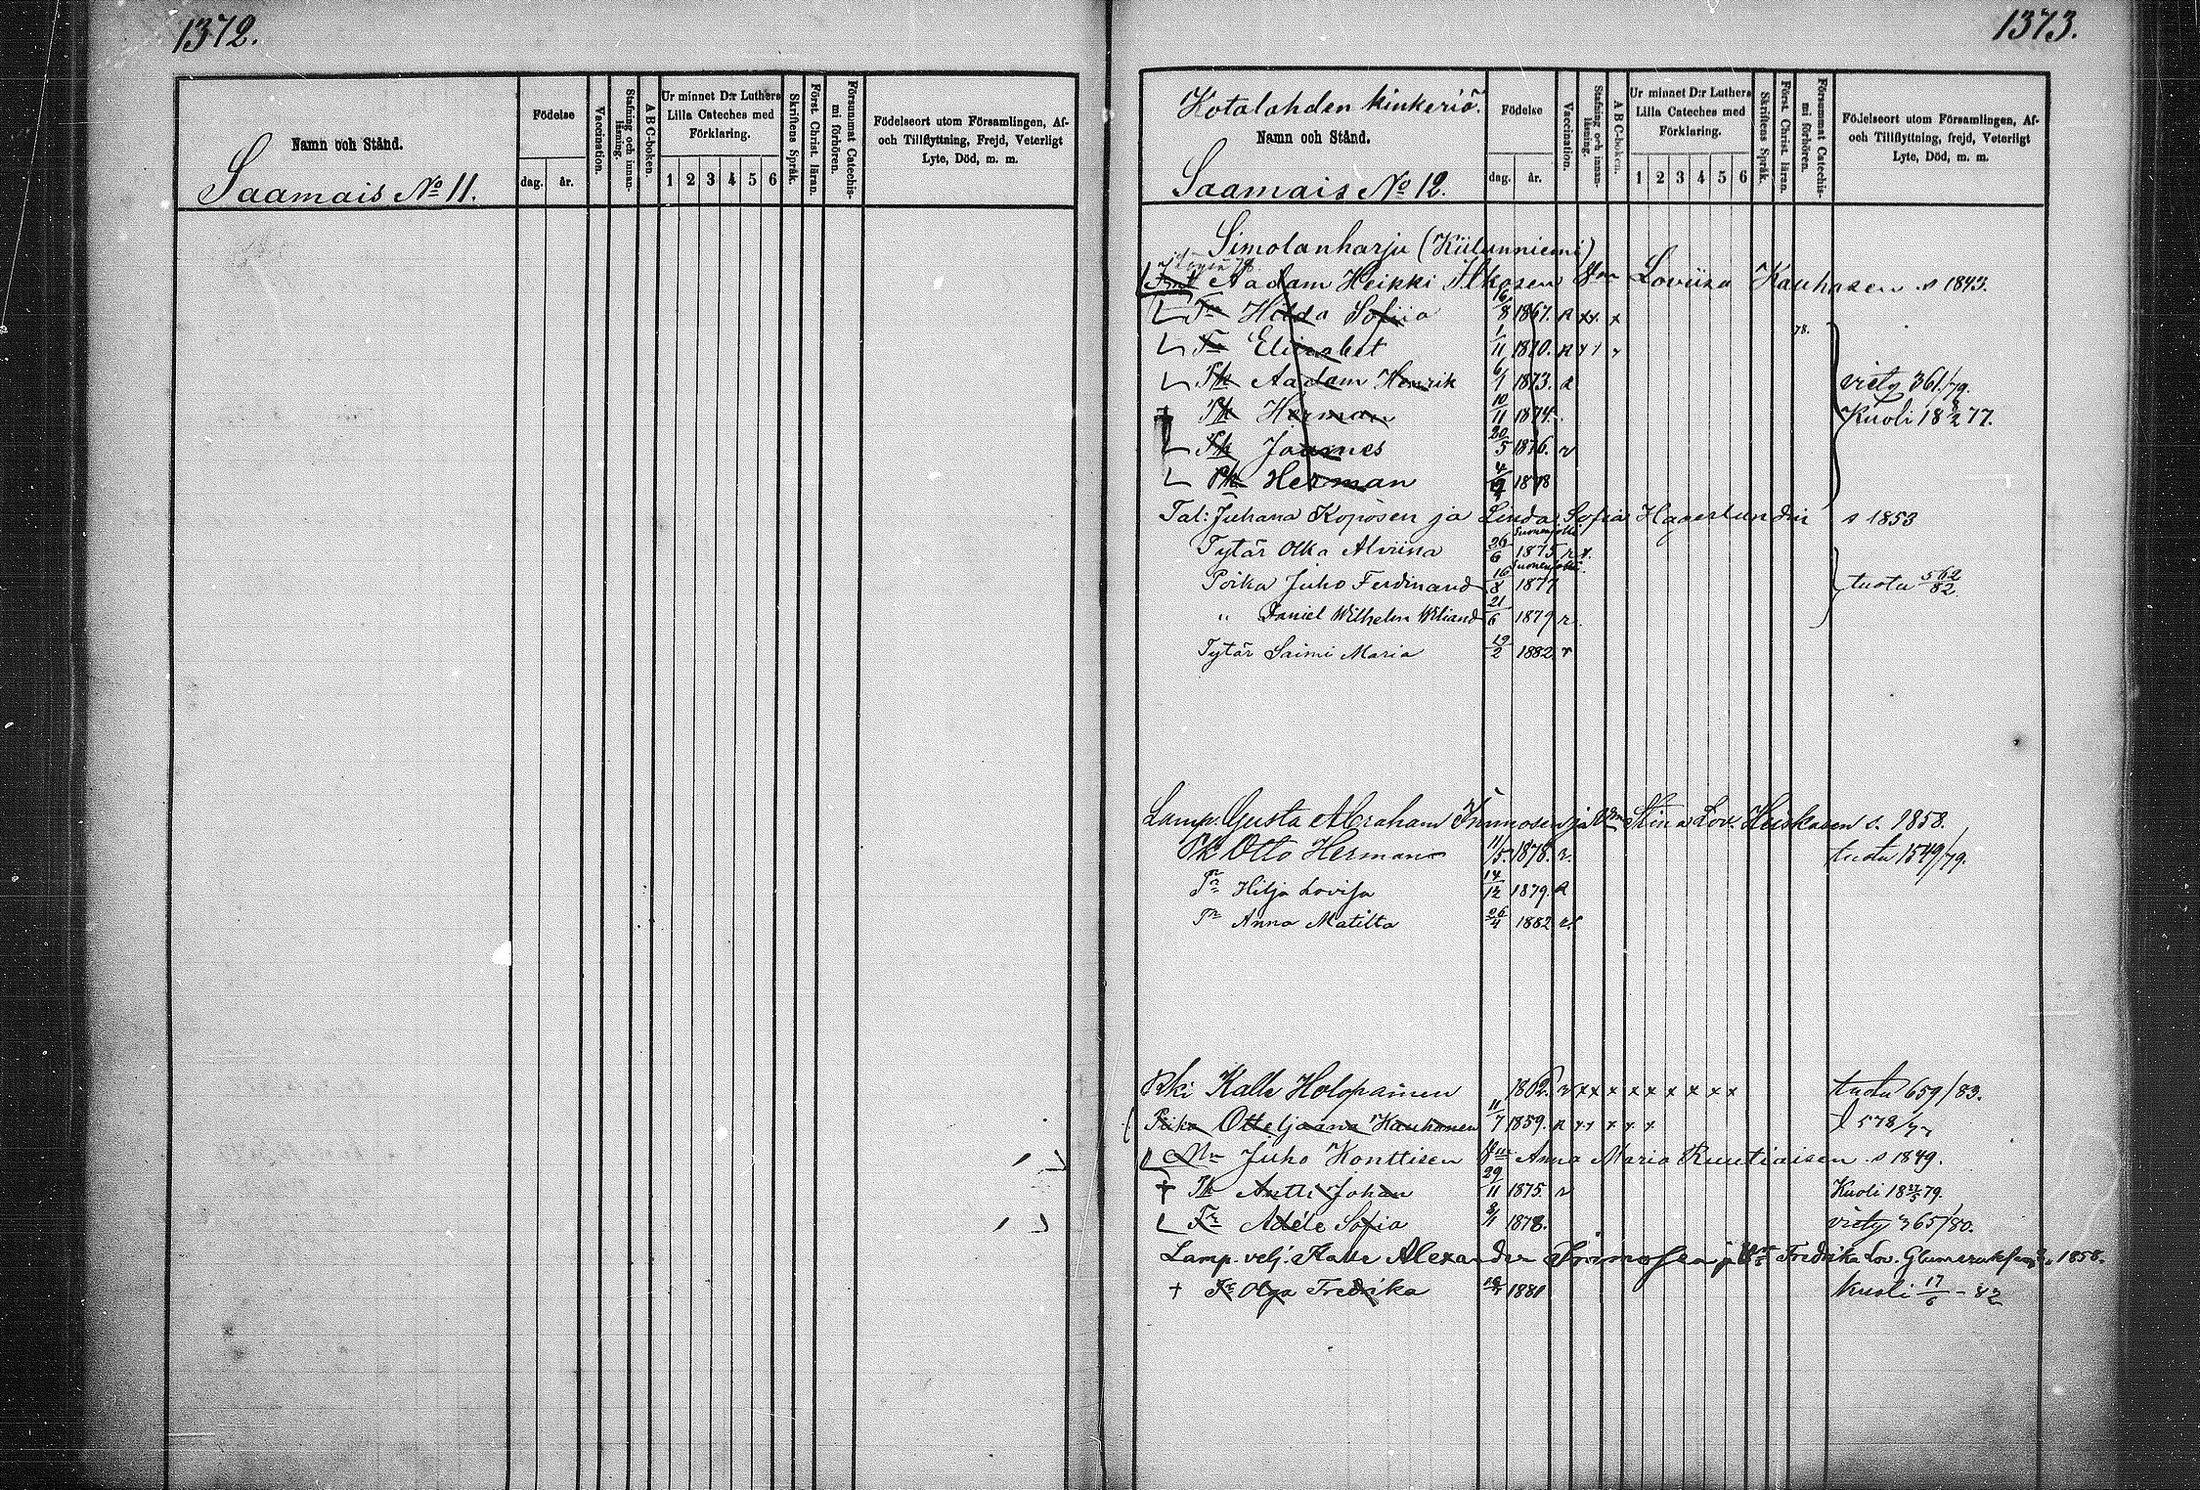 1372.
Namn och Stånd.
Saamais No 11.
Födelse
dag. år.
Vaccination.
Stafning och innanläsning.
A B C-boken.
Ur minnet D:r Luthers Lilla Cateches med Förklaring.
1 2 3 4 5 6
Skriftens Språk.
Först. Christ. läran.
Försummat Catechismi förhören.
Födelseort utom Församlingen, Af- och Tillflyttning, Frejd, Veterligt Lyte, Död, m. m.
1373.
Kotalahden kinkeriö.
Namn och Stånd.
Saamais No 12.
Födelse
dag. år.
Vaccination.
Stafning och innanläsning.
A B C-boken.
Ur minnet D:r Luthers Lilla Cateches med Förklaring.
1 2 3 4 5 6
Skriftens Språk.
Först. Christ. läran.
Försummat Catechismi förhören.
Födelseort utom Församlingen, Af- och Tillflyttning, frejd, Veterligt Lyte, Död, m. m.
Simolanharju (Kiilunniemi)
Aadam Heikki Ilkosen Loviisa Kauhasen s 1843.
Tr Hilda Sofiia 16/8 1867. R xx x
Tr Eliisabet 1/11 1870. R 78.
Pk Aadam Henrik 6/1 1873. R viety 361/79.
Pk Herman 10/11 1874. Kuoli 18 8/2 77.
Pk Joannes 20/5 1876. r
Pk Herman 1878
Tal: Juhana Koposen ja Linda Sofia Hagerlundin s 1853
Tytär Olka Alviina 26/6 1875 r x.
Poika Juho Ferdinand 16/8 1877 tuotu 562/82.
" Daniel Wilhelm Wiliand 21/6 1879 r.
Tytär Saimi Maria 19/2 1882 r
Lamp. Gusta Abraham Immosen ja Vmo Stina Lov. Heiskasen s. 1858.
Pk Otto Herman 11/5. 1878. r. tuotu 1549/79.
Tr Hilja Lovisa 14/12 1879. R
Tr Anna Matilta 26/4 1882 r.
Rki Kalle Holopainen 1862. r xx x x x x x x x tuotu 659/83.
Piika Otteljaana Kauhanen 11/7 1859. R x x x x x 578/77
Mn Juho Konttisen Anna Maria Ruutiaisen s 1849.
† Pk Antti Johan 29/11 1875. r Kuoli 18 27/5 79.
Tr Adéle Sofia 8/1 1878. viety 365/80.
Lamp. velj. Kalle Alexander Immosen ja Fredrika Lov. s. 1858.
† Tr Olga Fredrika 1881 Kuoli 17/6 - 82